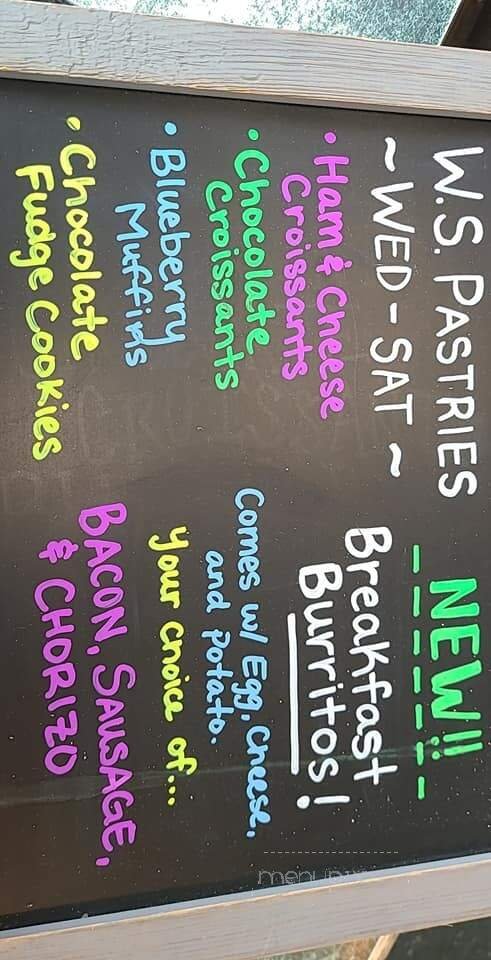 W.S. PASTRIES
~WED-SAT~
• Ham & Cheese
Croissants
• Chocolate
Croissants
• Blueberry
Muffins
• Chocolate
Fudge Cookies
NEW!!
Breakfast
Burritos!
Comes w/ Egg, Cheese,
and Potato.
your choice of...
BACON, SAUSAGE,
& CHORIZO